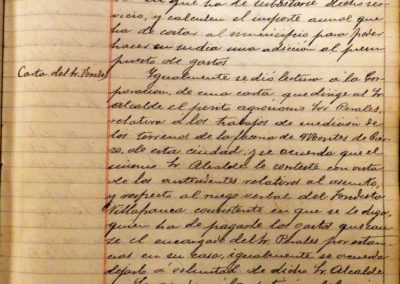 en que ha de subastarse dicho ser-
vicio, y calculen el importe anual que
ha de costar al municipio para poder
hacer en su dia una adicion al presu-
puesto de gastos
Carta del Sr. Perales
Igualmente se dió lectura á la Cor-
poracion, de una carta que dirige al Sr.
Alcalde el perito agronomo Sr. Perales,
relativa á los trabajos de medicion de
los terrenos de la
de esta ciudad, y se acuerda que el
mismo Sr. Alcalde le conteste con vista
de los antecedentes relativos al asunto,
y respecto al ruego verbal del Fondista
Villafranca consistente en que se le diga,
quien ha de pagarle los gastos que cau-
se el encargado del Sr. Perales por estan-
cias en su casa, igualmente se acuerda
dejarlo á voluntad de dicho Sr. Alcalde